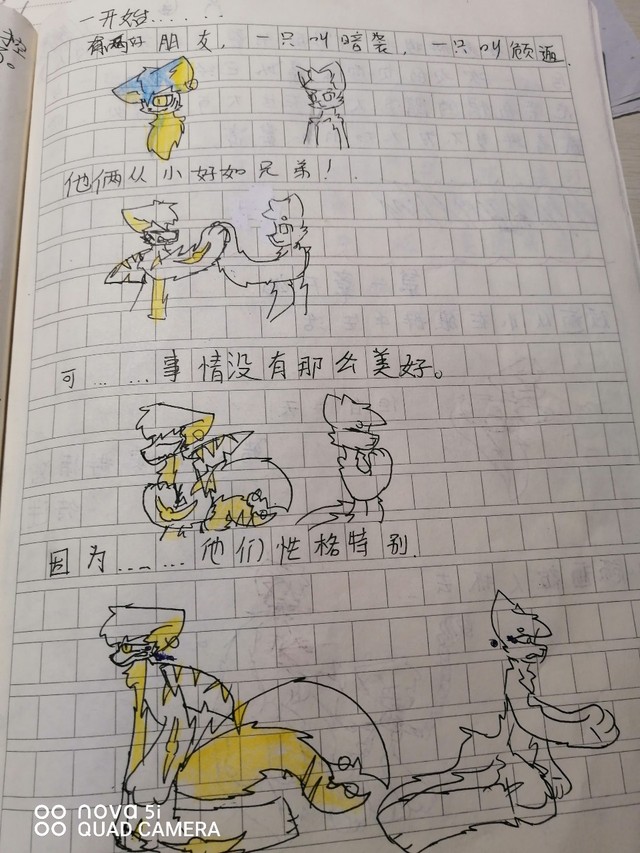 一开始.......
有两好朋友，一只叫暗袭，一只叫倾遁.
他俩从小好如兄弟！.
可......事情没有那么美好。
因为......他们性格特别.
nova 5i
QUAD CAMERA